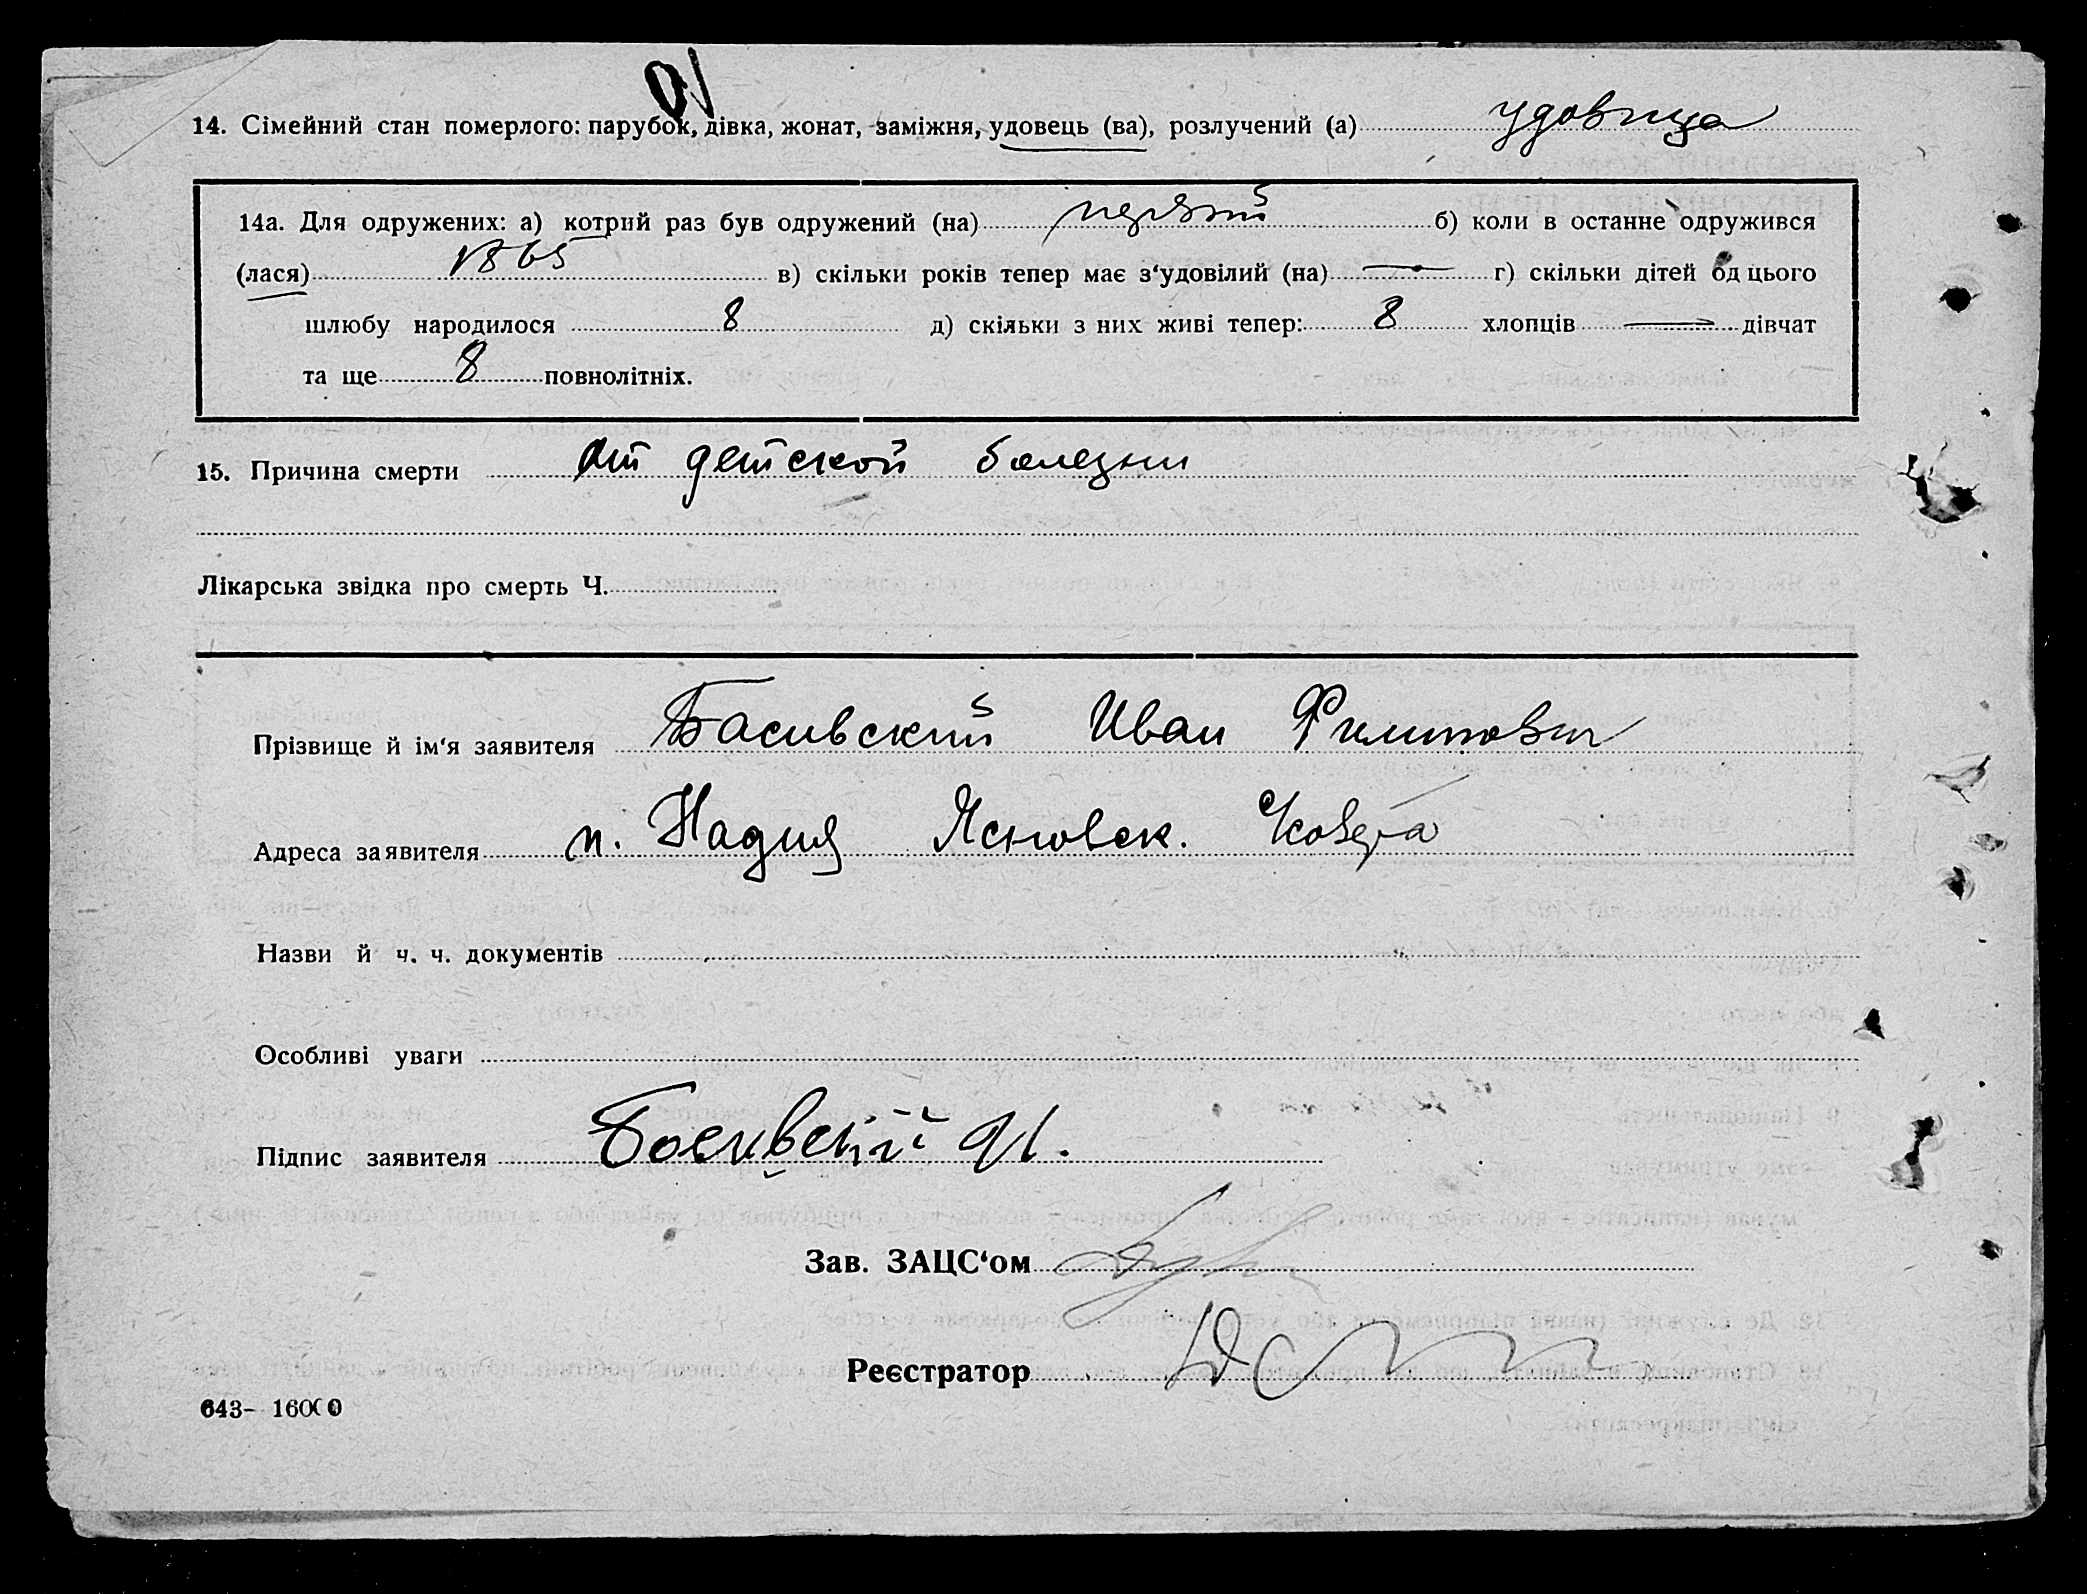 14. Сімейний стан померлого: парубок, дівка, жонат, заміжня, удовець (ва), розлучений (а) удовица
14а. Для одружених: а) котрий раз був одружений (на) первый б) коли в останне одружився
(лася) 1865 в) скільки років тепер має з'удовілий (на) — г) скільки дітей од цього
шлюбу народилося 8 д) скільки з них живі тепер: 8 хлопців — дівчат
та ще 8 повнолітніх.
15. Причина смерти от детской болезни
Лікарська звідка про смерть Ч.
Прізвище й ім'я заявителя Басивский Иван Филипович
Адреса заявителя п. Надия
Назви й ч. ч. документів
Особливі уваги
Підпис заявителя
Зав. ЗАЦС'ом
Реєстратор
643- 16000